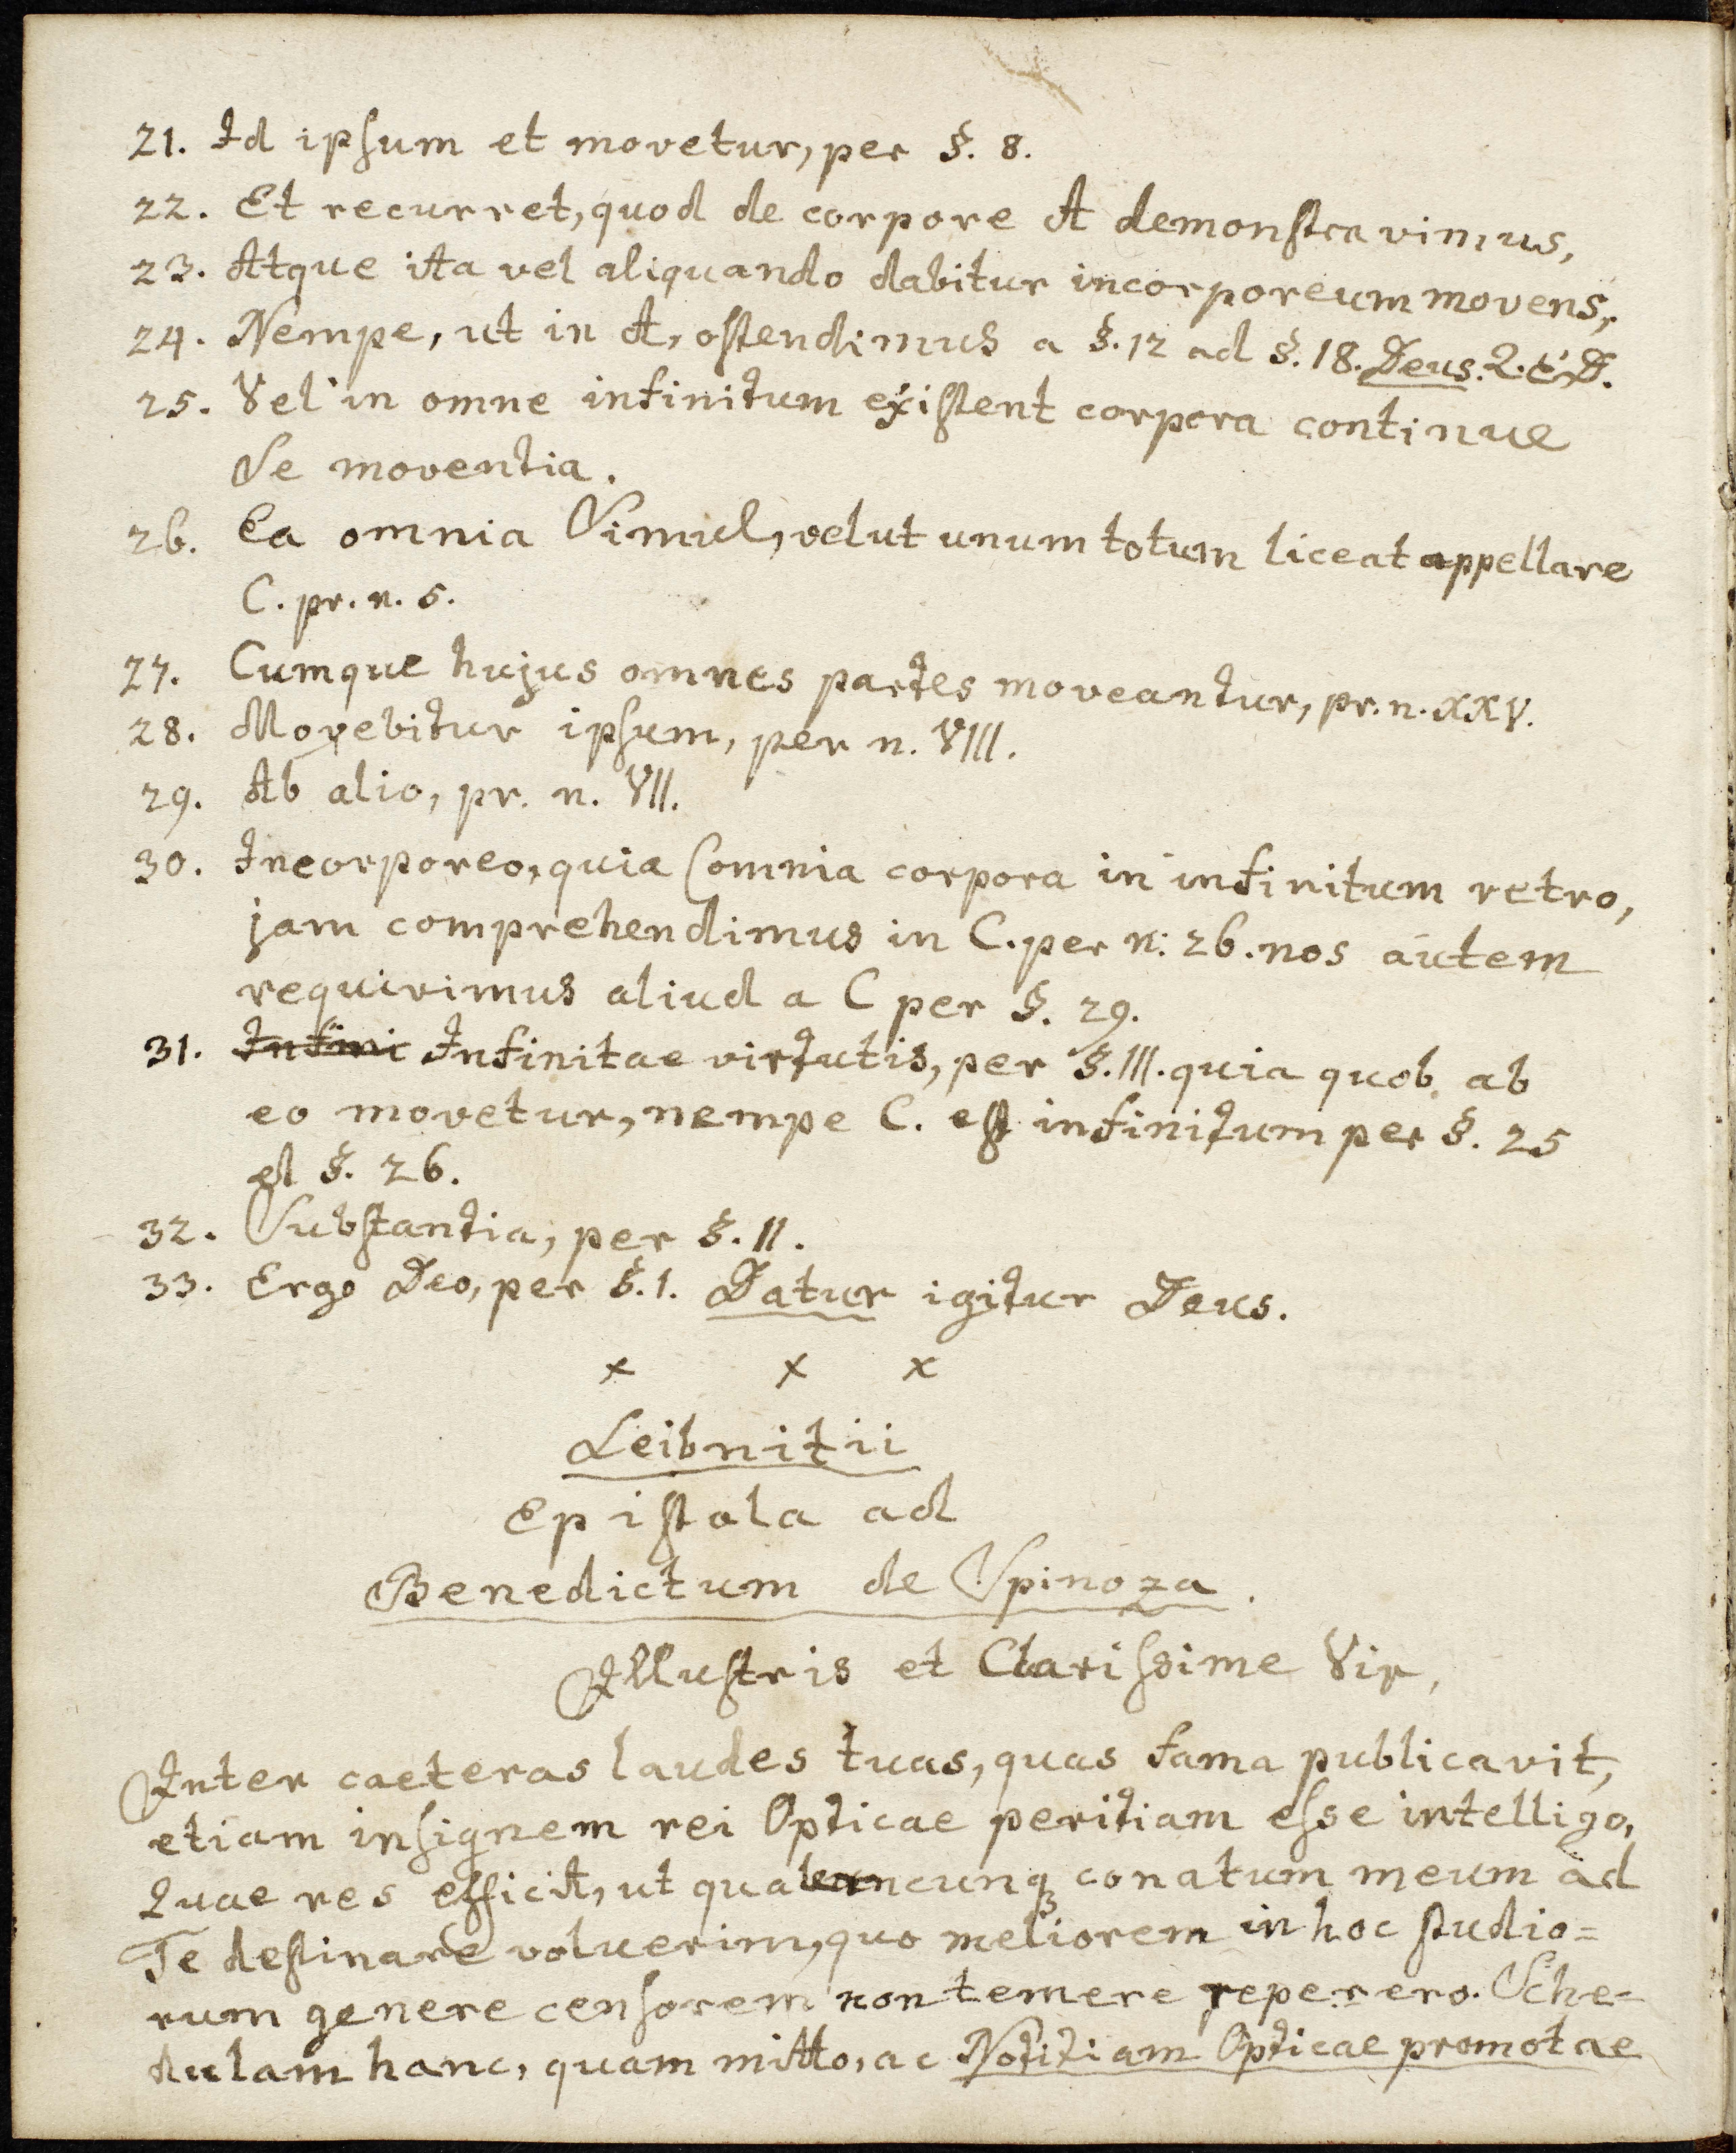 21. Id ipsum et movetur, per §. 8.
22. Et recurret, quod de corpore A demonstravimus,
23. Atque ita vel aliquando dabitur incorporeum movens,
24. Nempe, ut in A, ostendimus a §. 12 ad §. 18. Deus. Q. E. D.
25. Vel in omne infinitum existent corpora continue
se moventia.
26. Ea omnia simul, velut unum totum liceat appellare
C. pr. n. 5.
27. Cumque hujus omnes partes moveantur, pr. n. XXV.
28. Movebitur ipsum, per n. VIII.
29. Ab alio, pr. n. VII.
30. Incorporeo, quia (omnia corpora in infinitum retro,
jam comprehendimus in C. per n: 26. nos autem
requirimus aliud a C per §. 29.
31. Infini Infinitae virtutis, per §. III. quia quob. ab
eo movetur, nempe C. est infinitum per §. 25
et §. 26.
32. Substantia, per §. II.
33. Ergo Deo, per §. 1. Datur igitur Deus.
x x x
Leibnitii
Epistola ad
Benedictum de Spinoza.
Illustris et Clarissime Vir,
Inter caeteras laudes tuas, quas fama publicavit,
etiam insignem rei Opticae peritiam esse intelligo,
Quae res efficit, ut qualemcunq; conatum meum ad
Te destinare voluerim, quo meliorem in hoc studio=
rum genere censorem non temere reperero. Sche=
dulam hanc, quam mitto, ac Notitiam Opticae promotae